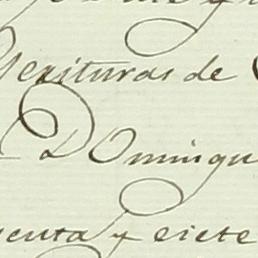 Scrituras de
Domingu
uenta y siete